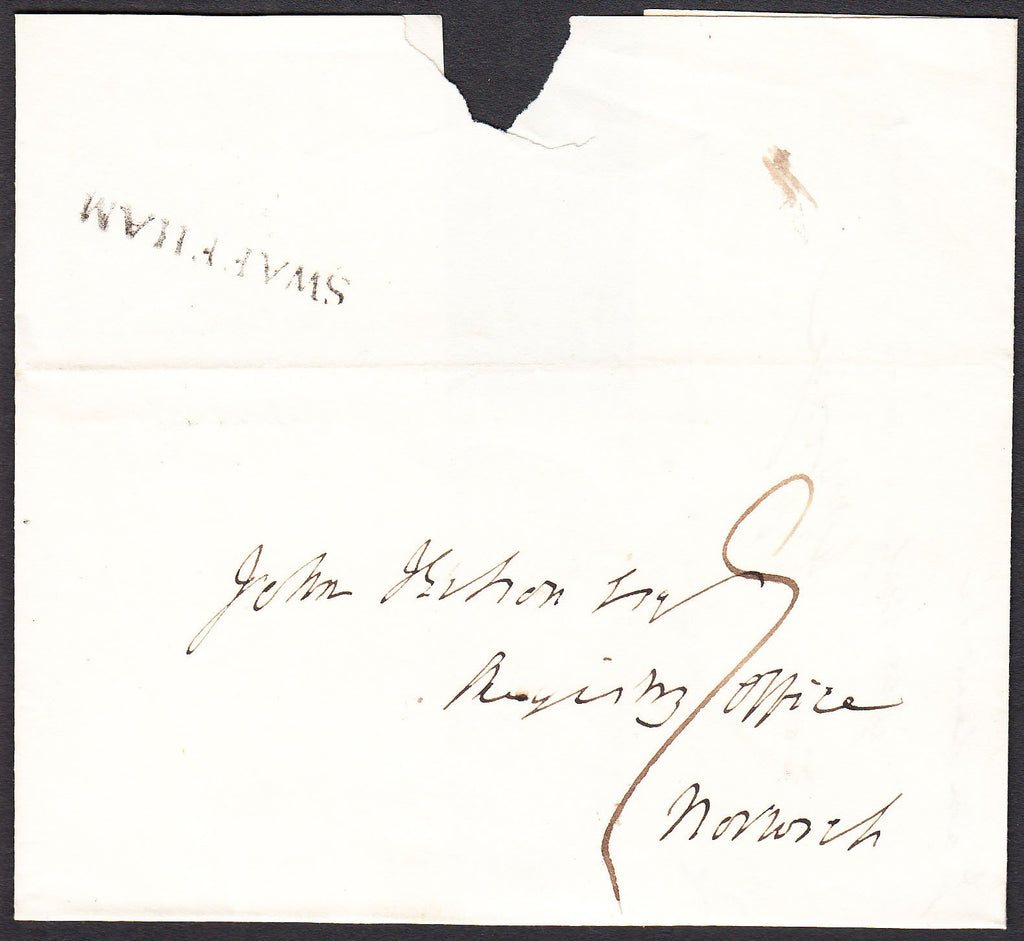 SWAFFHAM
John Kitson Esq
Registry Office
Norwich